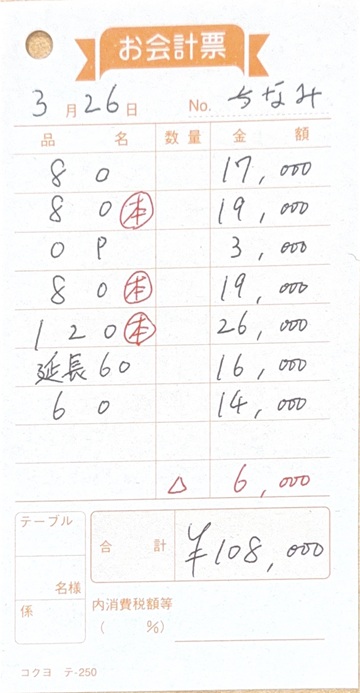 お会計票
3月26日 No. ちなみ
品名 数量 金額
80 17,000
80 本 19,000
OP 3,000
80 本 19,000
120 本 26,000
延長60 16,000
60 14,000
△ 6,000
テーブル
名様
係
合計 ¥108,000
内消費税額等
( %)
コクヨ テ-250